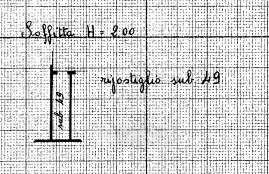 Soffitta H = 2.00
ripostiglio sub 49
sub 49